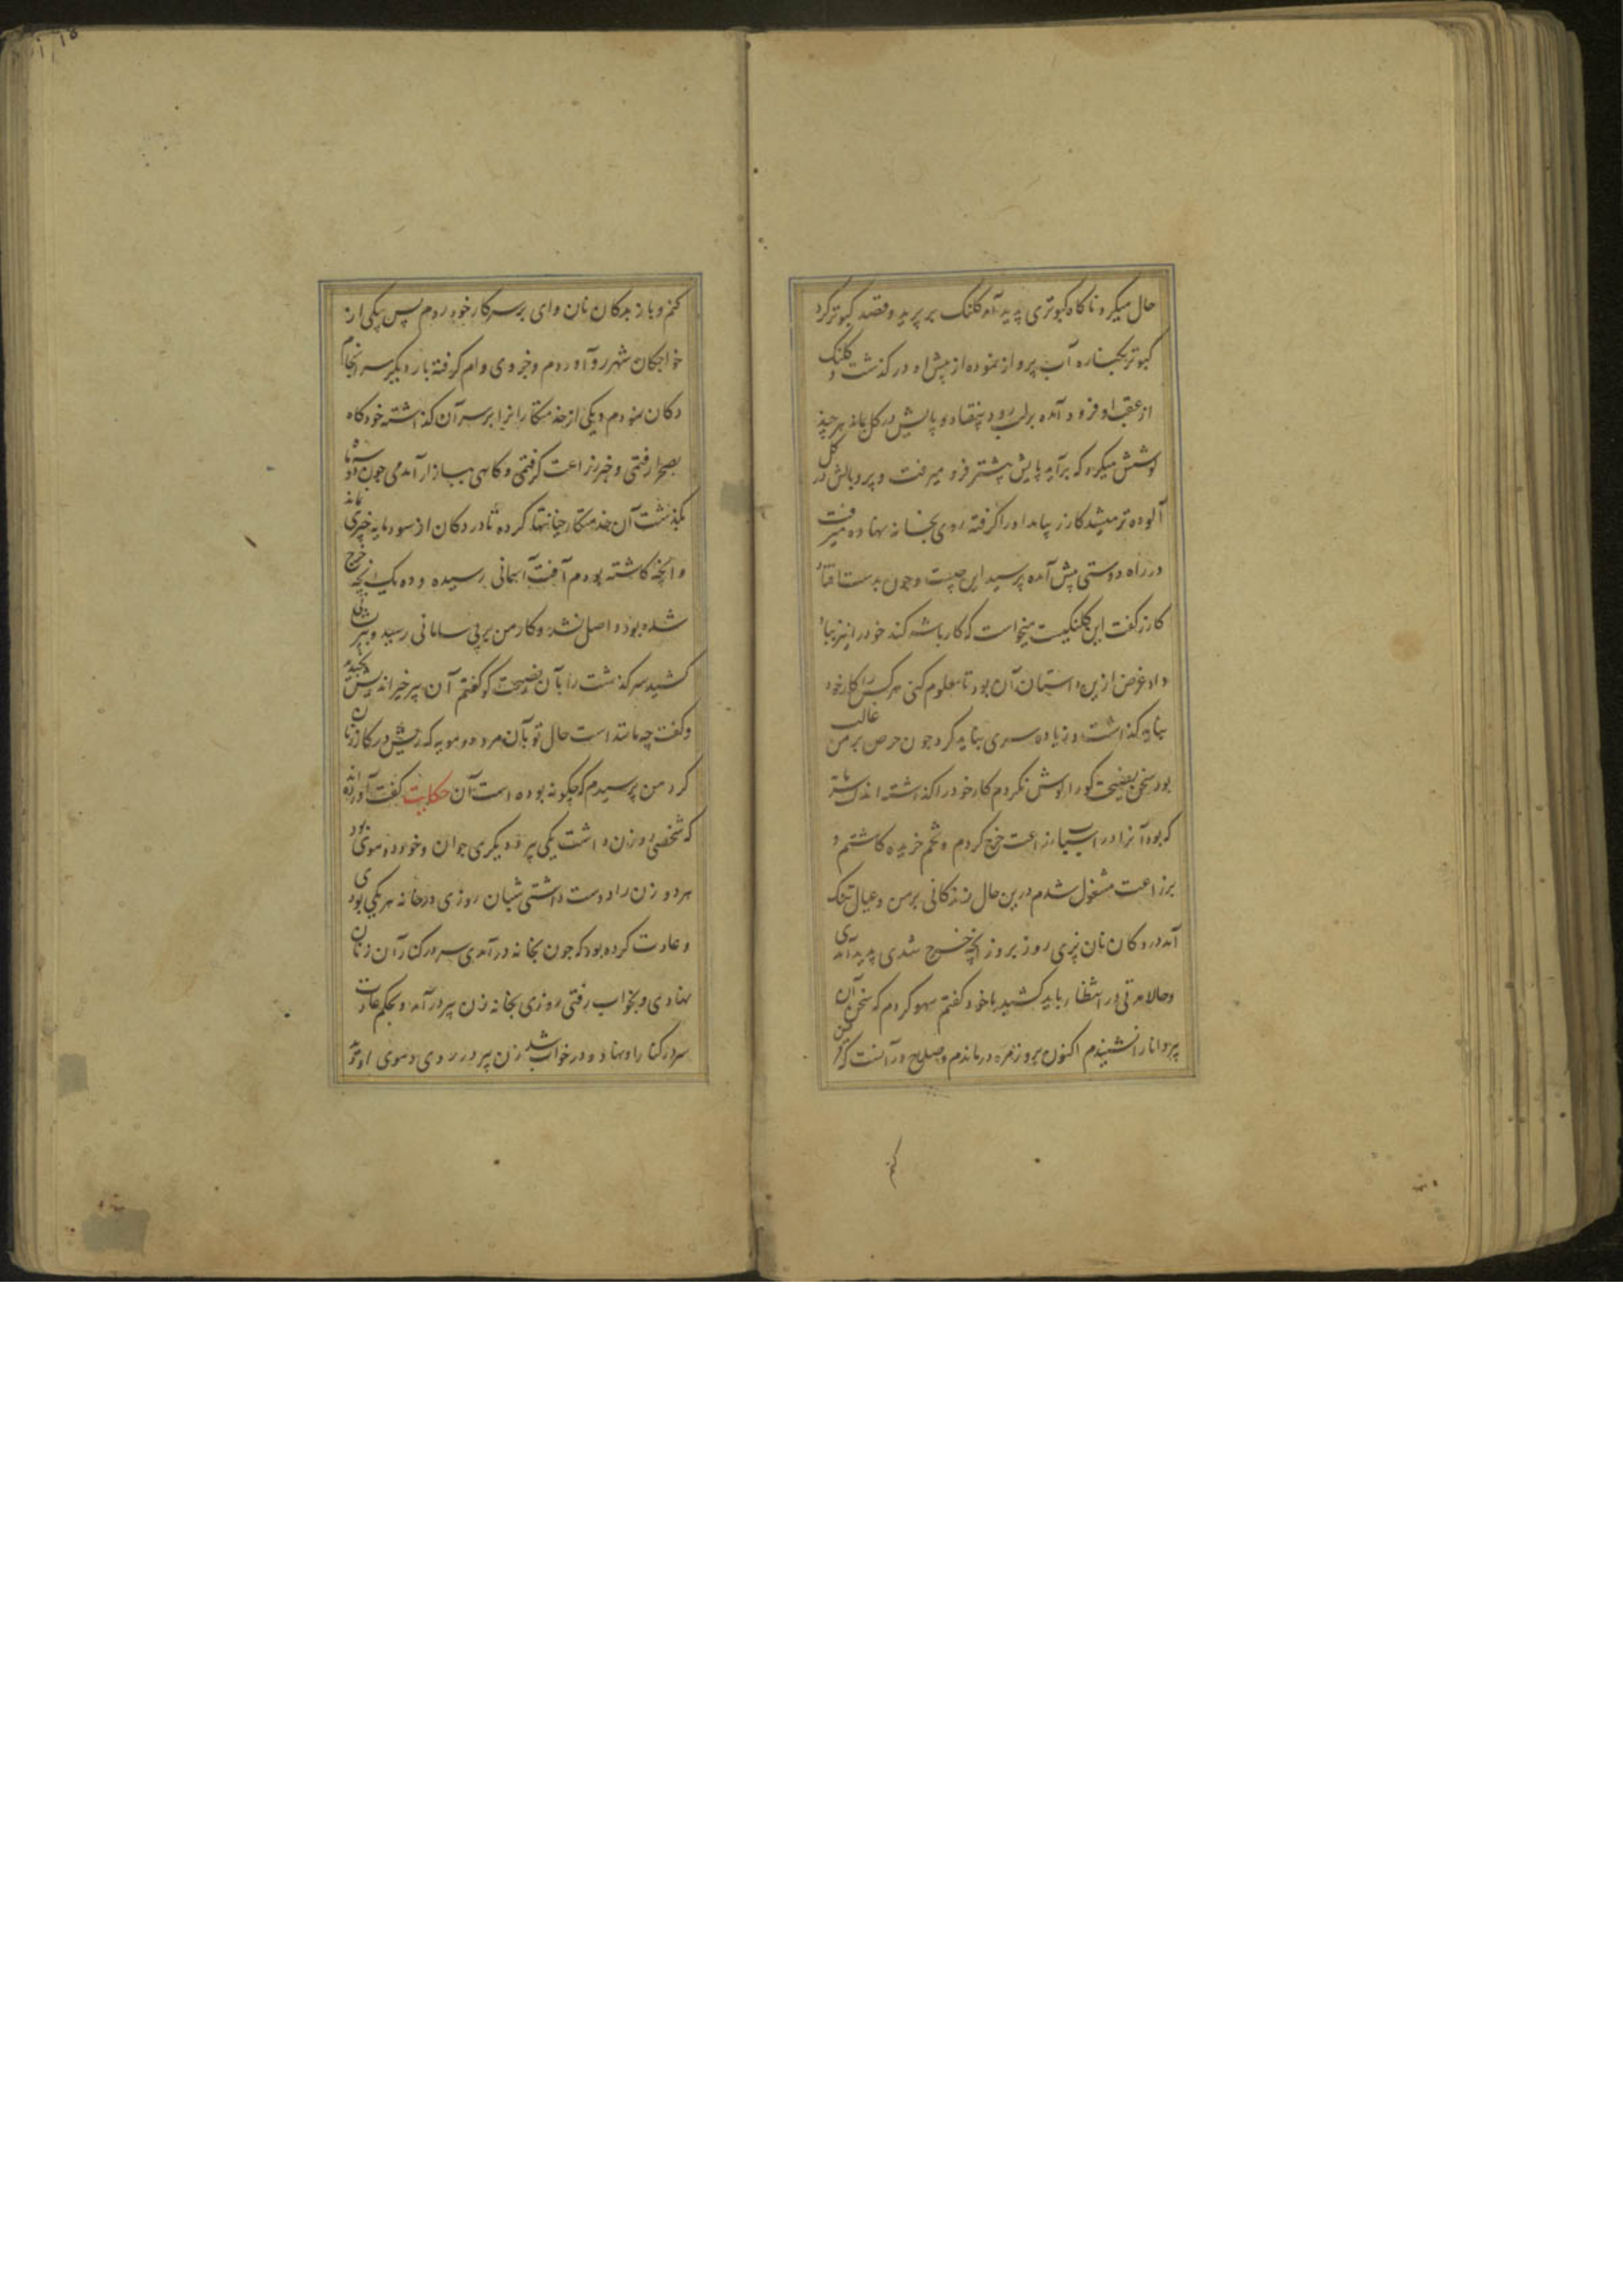 حال میکرد ناکاه کبوتری پدید آمد کلنک بر پرید و قصد کبوتر کرد
کبوتر بکناره آب پرواز نموده از پیش او در کذشت و کلنک
از عقب او فرود آمده بر لب رود بیفتاد و پایش در کل بماند هر چند
کوشش میکرد که برآید پایش بیشتر فرو میرفت و پر و بالش در کل
آلوده تر میشد کازر بیامد اورا کرفته روی بخانه نهاده میرفت
در راه دوستی پیش آمده پرسید این چیست و چون بدست افتاد
کازر کفت این کلنکیست میخواست که کار باشه کند خود را نیز بباد
داد غرض ازین داستان آن بود تا معلوم کنی هر کس را کار خود
نباید کذاشت و زیاده سری نباید کرد چون حرص بر من غالب
بود سخن نصیحت کو را کوش نکردم کار خود را کذاشته اندک مایه
که بود آنرا در اسباب زراعت خرج کردم و تخم خریده کاشتم و
بزراعت مشغول شدم درین حال زندکانی بر من و عیال تنک
آمد در دکان نان پزی روز بروز آنچه خرج شدی پدید آمدی
و حالا مدتی در انتظار باید کشید با خود کفتم سهو کردم که سخن آن
پیر دانا را نشنیدم اکنون بروزمره درماندم و صلاح در آنست که قرض
کنم
کنم و باز بدکان نان وای بر سر کار خود روم پس بیکی از
خواجکان شهر رو آوردم و جزوی وام کرفته بار دیکر سرانجام
دکان نمودم و یکی از خدمتکاران را بر سر آن کذاشته خود کاه
بصحرا رفتمی و خبر زراعت کرفتمی و کاهی ببازار آمدمی چون دو سه ماه
بکذشت آن خدمتکار خیانتها کرده تا در دکان از سود مایه چیزی نماند
و آنچه کاشته بودم آفت آسمانی رسیده و ده یک آنچه خرج
شده بود واصل نشد و کار من بر بی سامانی رسید و بپریشانی
کشید سرکذشت را بآن نصیحت کو کفتم آن پیر خیر اندیش بخندید
و کفت چه مانند است حال تو بآن مرد دو مویه که ریش در کار زنان
کرد من پرسیدم که چکونه بوده است آن حکایت کفت آورده اند
که شخصی دو زن داشت یکی پیر و دیکری جوان و خود دو موی بود
هر دو زن را دوست داشتی شبان روزی در خانه هر یکی بودی
و عادت کرده بود که چون بخانه در آمدی سر در کنار آن زنان
نهادی و بخواب رفتی روزی بخانه زن پیر در آمد و بحکم عادت
سر در کنار او نهاد و در خواب شد زن پیر در روی و موی او